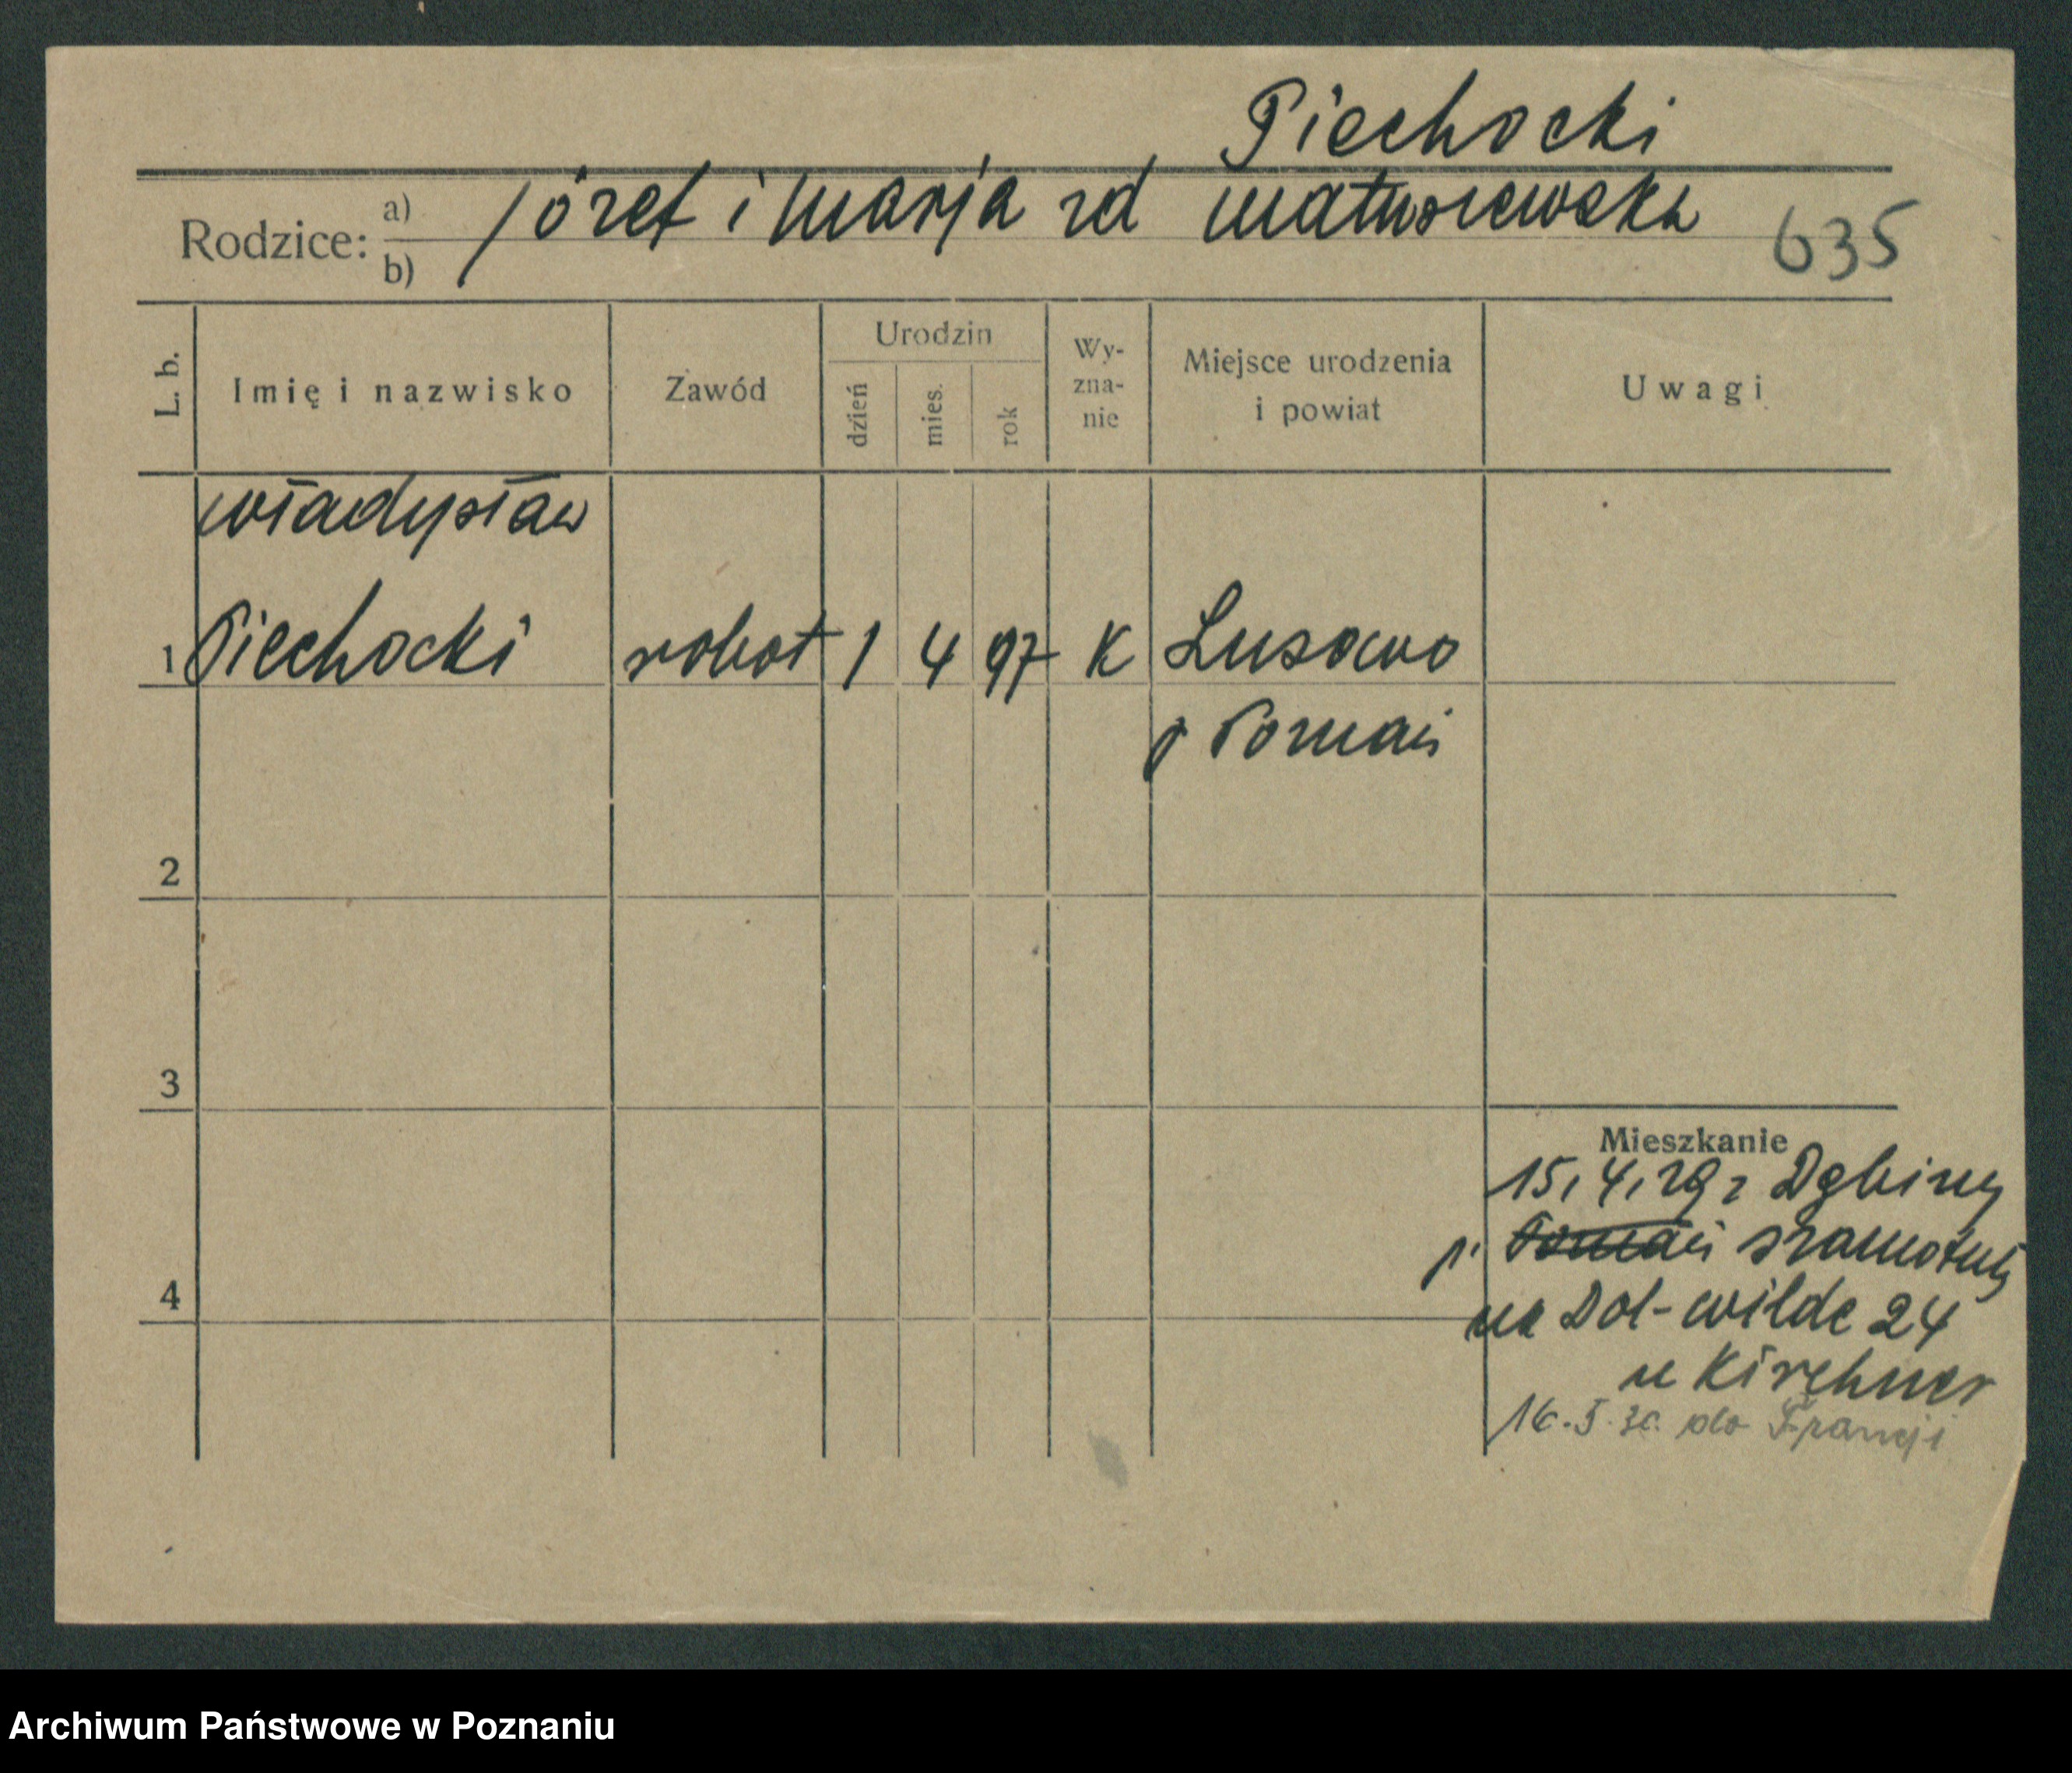 Piechocki
Rodzice: a) b) Józef i Marja zd Matuszewska 635
L. b. Imię i nazwisko Zawód Urodzin dzień mies. rok Wy-zna-nie Miejsce urodzenia i powiat Uwagi
Władysław
1 Piechocki robot 1 4 97 K Lusowo
p Poznań
2
3
Mieszkanie
15,4,29 z Dębiny
p. Poznań Szamotuły
4
na Dol-Wilde 24
u Kirchner
16.5.30. do Francji
Archiwum Państwowe w Poznaniu